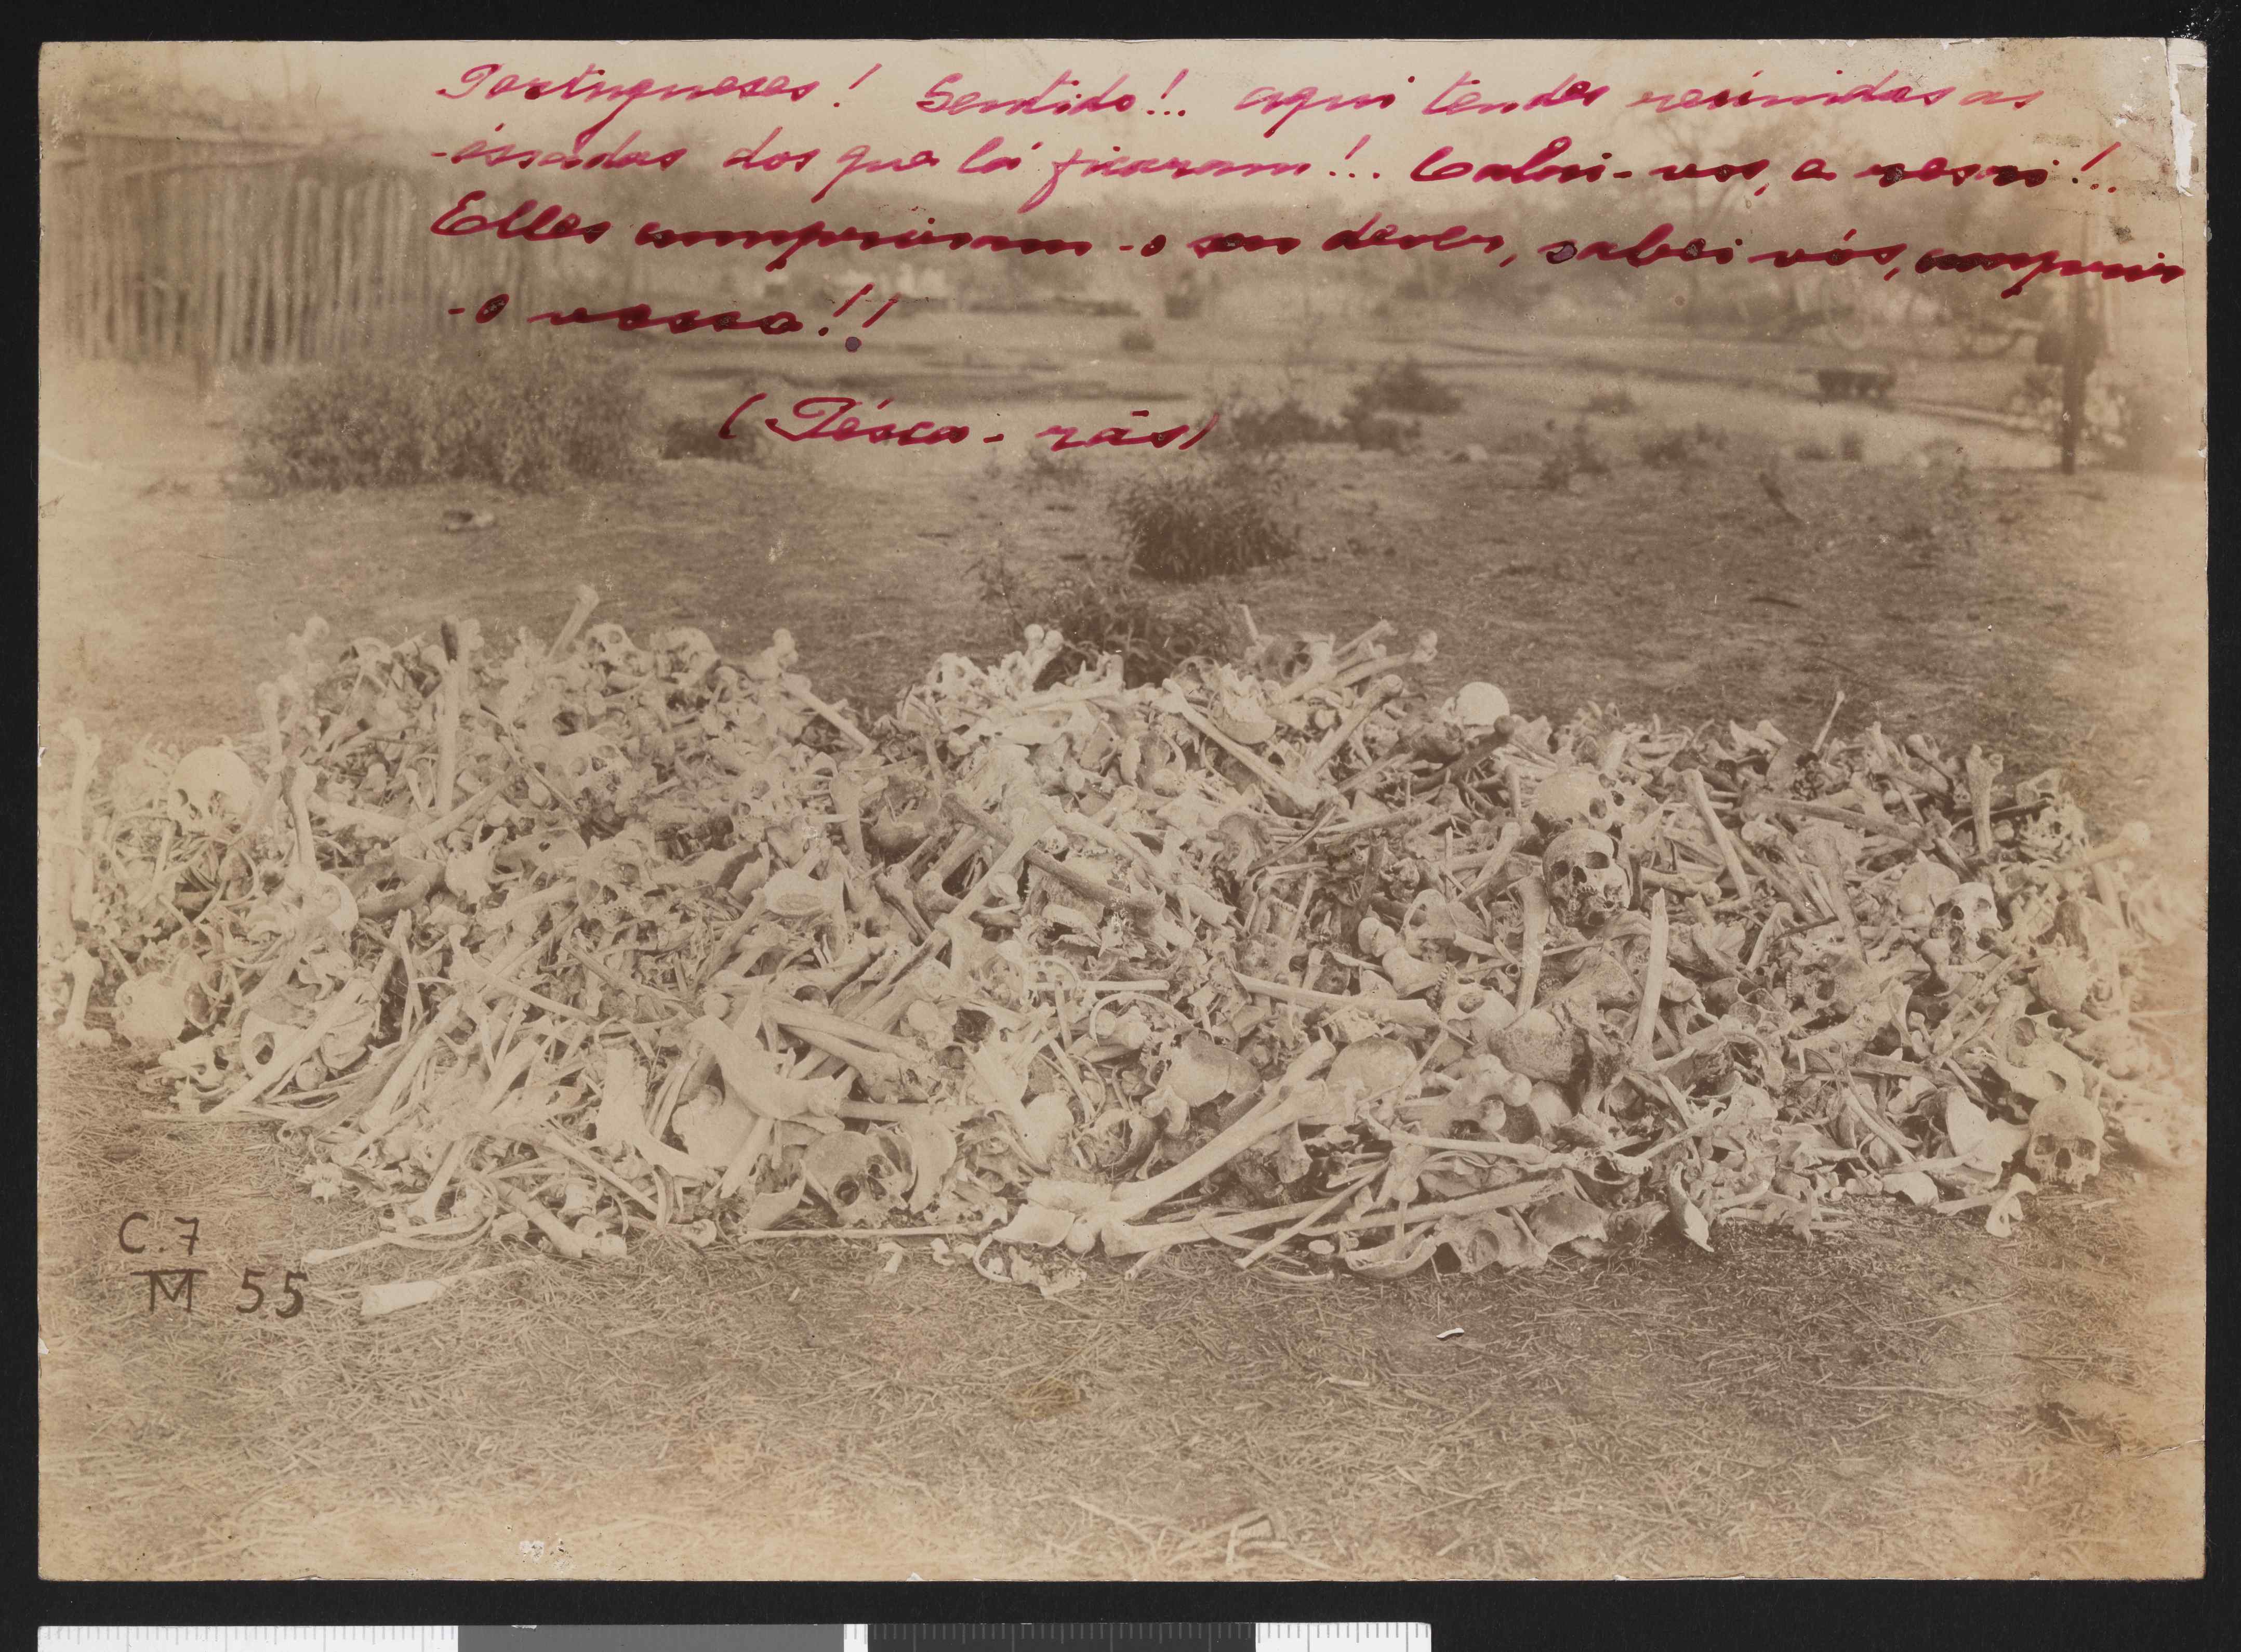 Portugueses! Sentido!.. aqui tendes reúnidas as
-óssádas dos que lá ficaram!... Calai-vos, e resai!..
Elles cumpriram-o seu dever, sabei vós, cumprir
-o vosso!!
(Pésca-rãs)
C.7
M 55